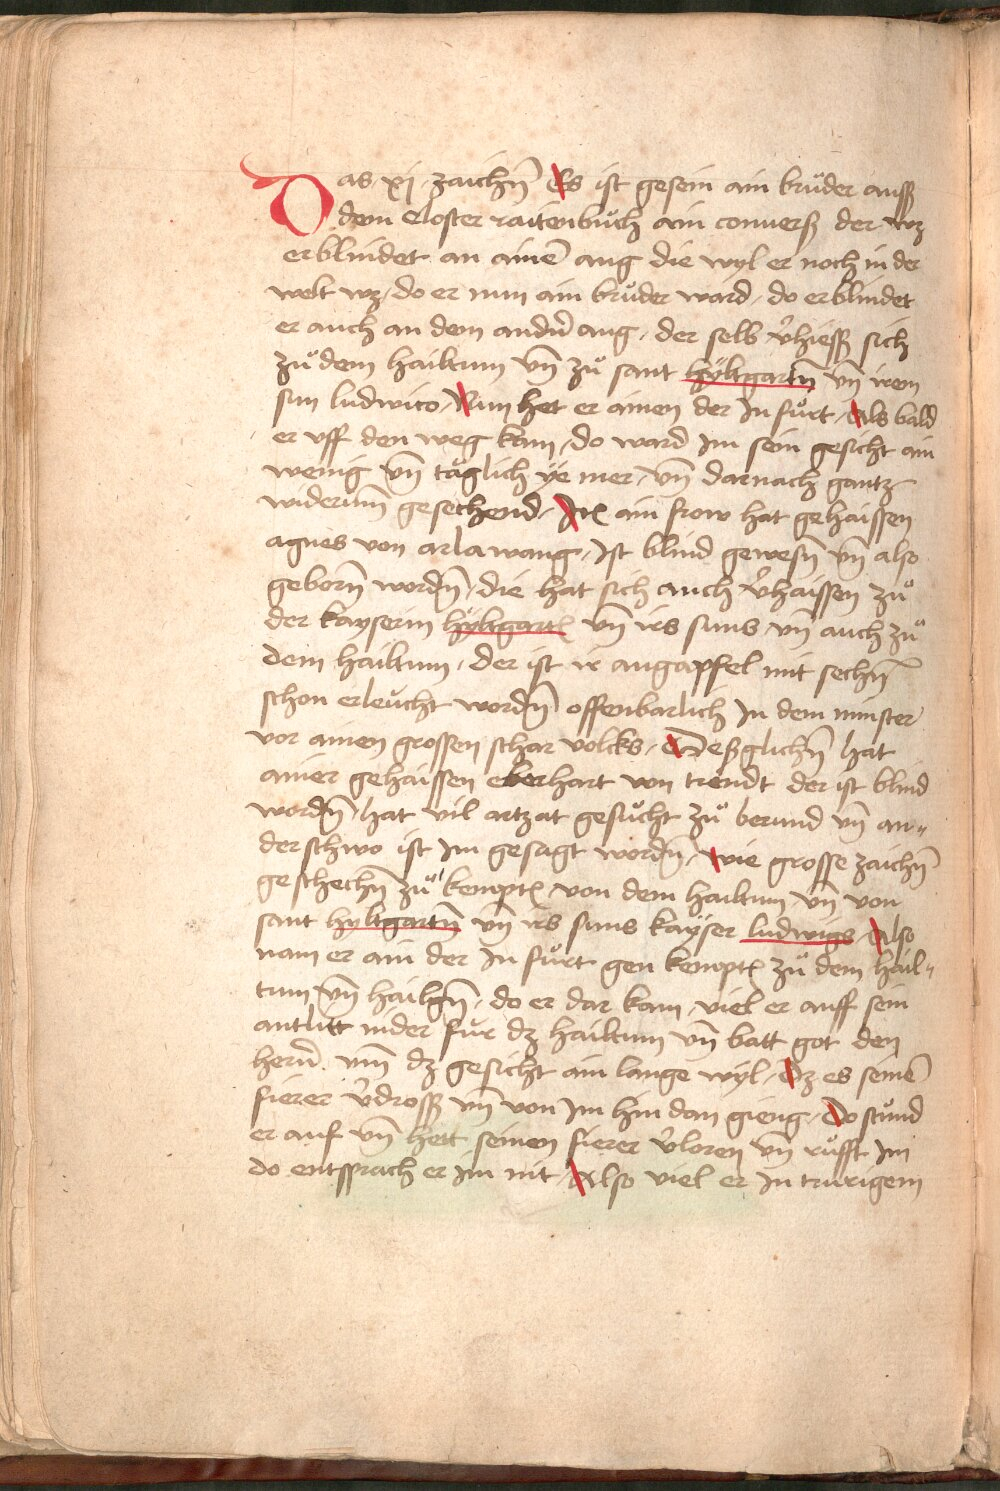 Das · xj · zaichn̄ Es ist gesein ain bruͦder auß
dem Closter raitenbuͦch ain conuerß der wz
erblindet an ainē aug die wyl er noch in der
welt wz / do er nun ain bruͦder ward / do erblindet
er auch an dem andn̄ aug / der selb v̓hiess sich
zuͦ dem hailtum vn̄ zuͦ sant hyltgartn̄ vn̄ irem
sun ludwico / Nun het er ainen der In fuͦrt / Als bald
er vff den weg kam / do ward im sein gesicht ain
wenig vn̄ täglich ye mer / vn̄ darnach gantz
widerum̄ gesechend / Itē ain frow hat gehaissen
agnes von arlawang / Ist blind gewesn̄ vn̄ also
geborn̄ wordn̄ / die hat sich auch v̓haissen zuͦ
der kayserin hyltgartē vn̄ irs suns vn̄ auch zuͦ
dem hailtum / der ist ir augapfel mit sechn̄
schon erleucht wordn̄ offenbarlich In dem minster
vor ainen grossen schar volcks / Deßglichn̄ hat
ainer gehaissen eberhart von trendt der ist blind
wordn̄ / hat vil artzat gesuͦcht zuͦ berund vn̄ an-
derschwo ist im gesagt wordn̄ / wie grosse zaichn̄
geschechn̄ zuͦ kemptē von dem hailtum vn̄ von
sant hyltgartn̄ vn̄ irs suns kayser ludwigs / Also
nam er ain der in fuͦrt gen kemptē zuͦ dem hail-
tum vn̄ hailgn̄ / do er dar kam / viel er auff sein
antlitt nider fur dz hailtum vn̄ batt got den
hern̄ vm̄ dz gesicht ain lange wyl / Dz es seinē
fierer v̓dross vn̄ von im hin dan gieng / Do stuͦnd
er auf vn̄ hett seinen fierer v̓loren vn̄ ruͦfft im
do entsprach er im nit / Also viel er In trurigem